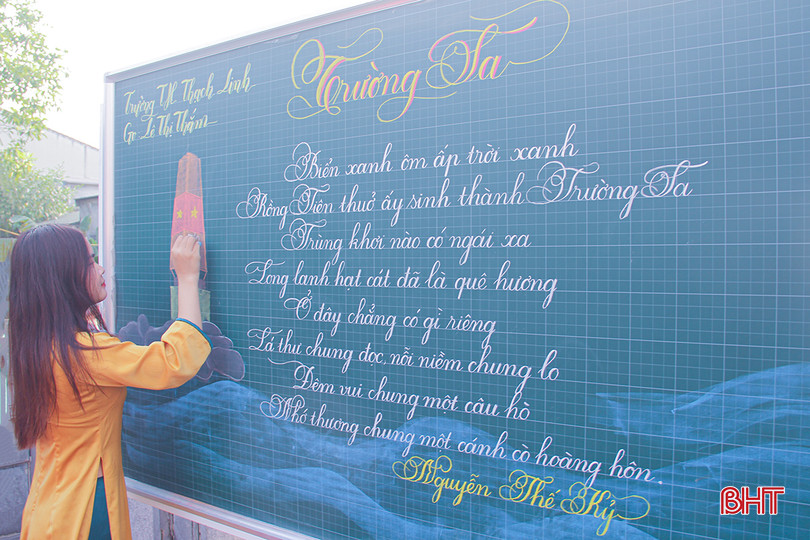 Trường TH Thạch Linh
Gv: Lê Thị Thắm
Trường Sa
Biển xanh ôm ấp trời xanh
Rồng Tiên thuở ấy sinh thành Trường Sa
Trùng khơi nào có ngái xa
Long lanh hạt cát đã là quê hương
Ở đây chẳng có gì riêng
Lá thư chung đọc, nỗi niềm chung lo
Đêm vui chung một câu hò
Nhớ thương chung một cánh cò hoàng hôn.
Nguyễn Thế Kỷ
BHT